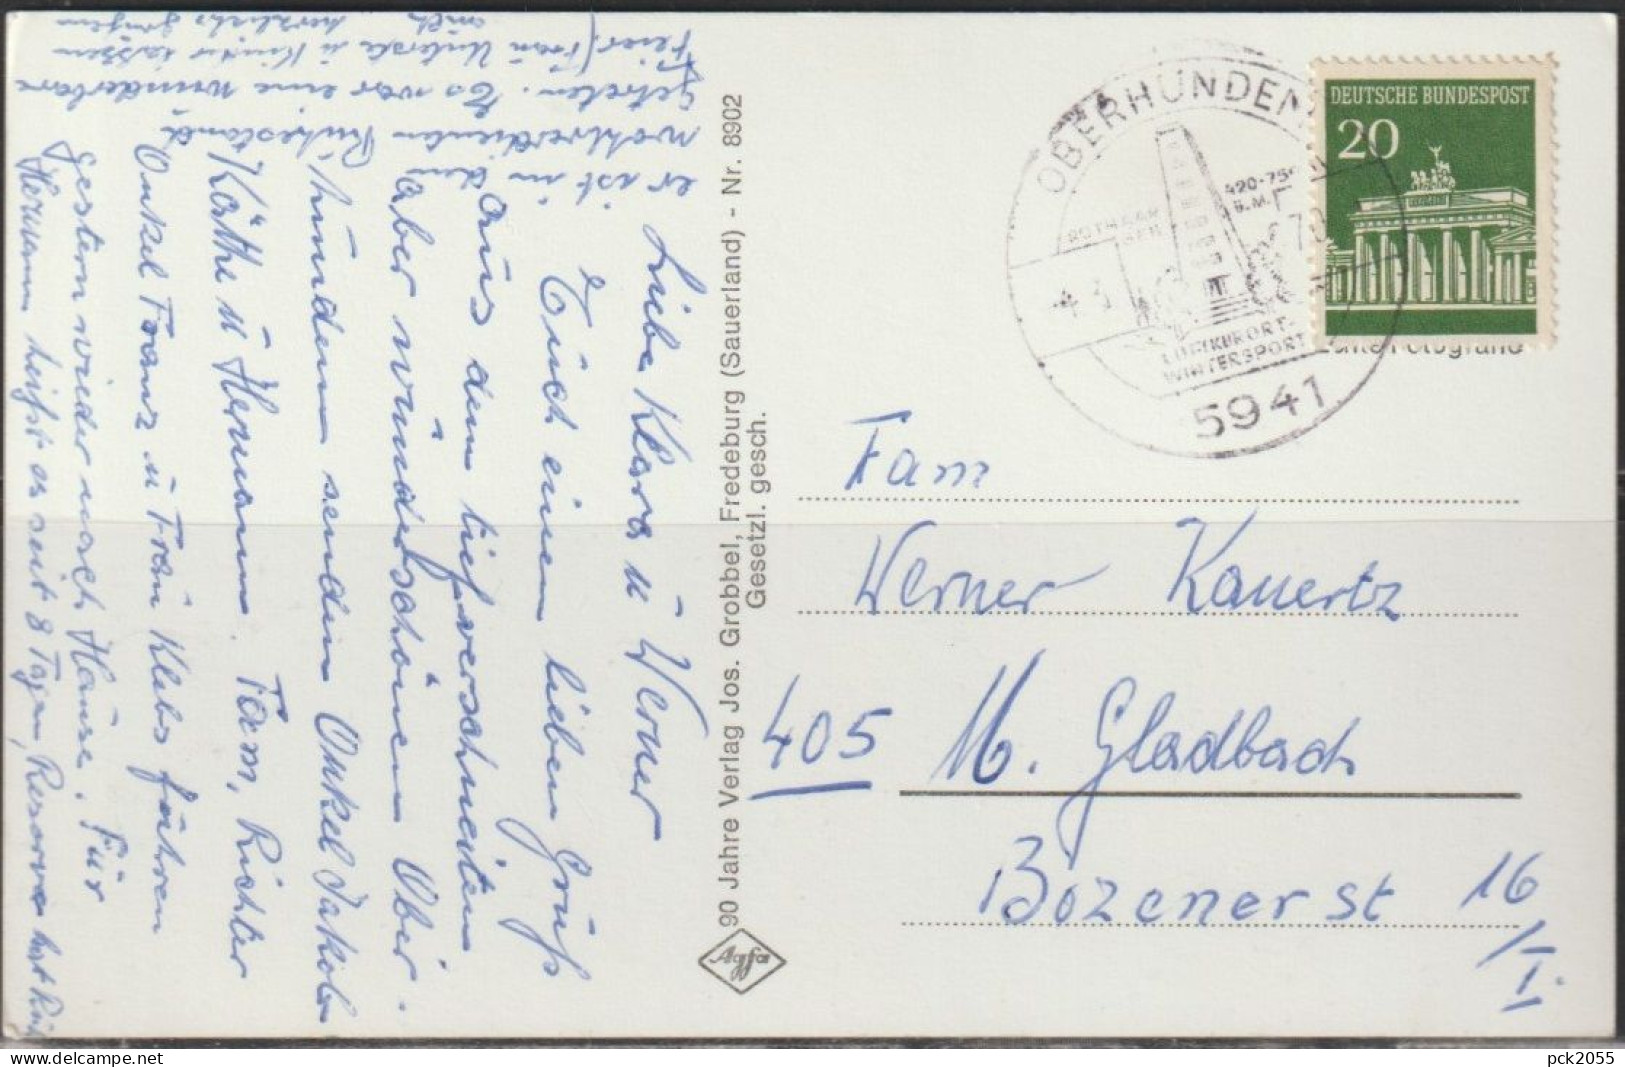 Liebe Klara u Werner
Euch einen lieben Gruß
aus dem tiefverschneiten
aber wunderschönen Ober
hundem senden Onkel Jakob
Käthe u Hermann. Fam, Richter
Onkel Franz u Frau Klebs fahren
gestern wieder nach Hause. Für
Hermann heißt es seit 8 Tagen, Reserve hat Ruh
er ist in den
wohlverdienten Ruhestand
getreten. Es war eine wunderbare
Feier. (Frau u Kinder lassen
herzlichst grüßen
90 Jahre Verlag Jos. Grobbel, Fredeburg (Sauerland) - Nr. 8902
Gesetzl. gesch.
Agfa
OBERHUNDEM
420-75
ROTHAAR
GEB.
-4. 3.
70
LUFTKURORT-
WINTERSPORT
5941
DEUTSCHE BUNDESPOST
20
Fotografie
Fam
Werner Kauertz
405 M. Gladbach
Bozenerst 16
/I.
delcampe.net
pck2055